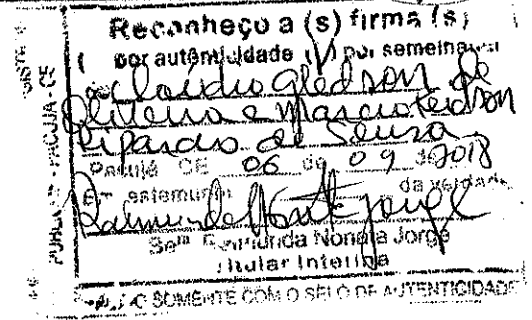 Reconheço a (s) firma (s)
( por autenticidade (V) por semelhança
de Claúdio Gledson de
Oliveira e Marcio
de Souza
Pacujá CE 06 de 09 de 2018
Em testemunho da verdade
Raimunda Nonata Jorge
Belª Raimunda Nonata Jorge
Titular Interina
SOMENTE COM O SELO DE AUTENTICIDADE
PACUJÁ - CE